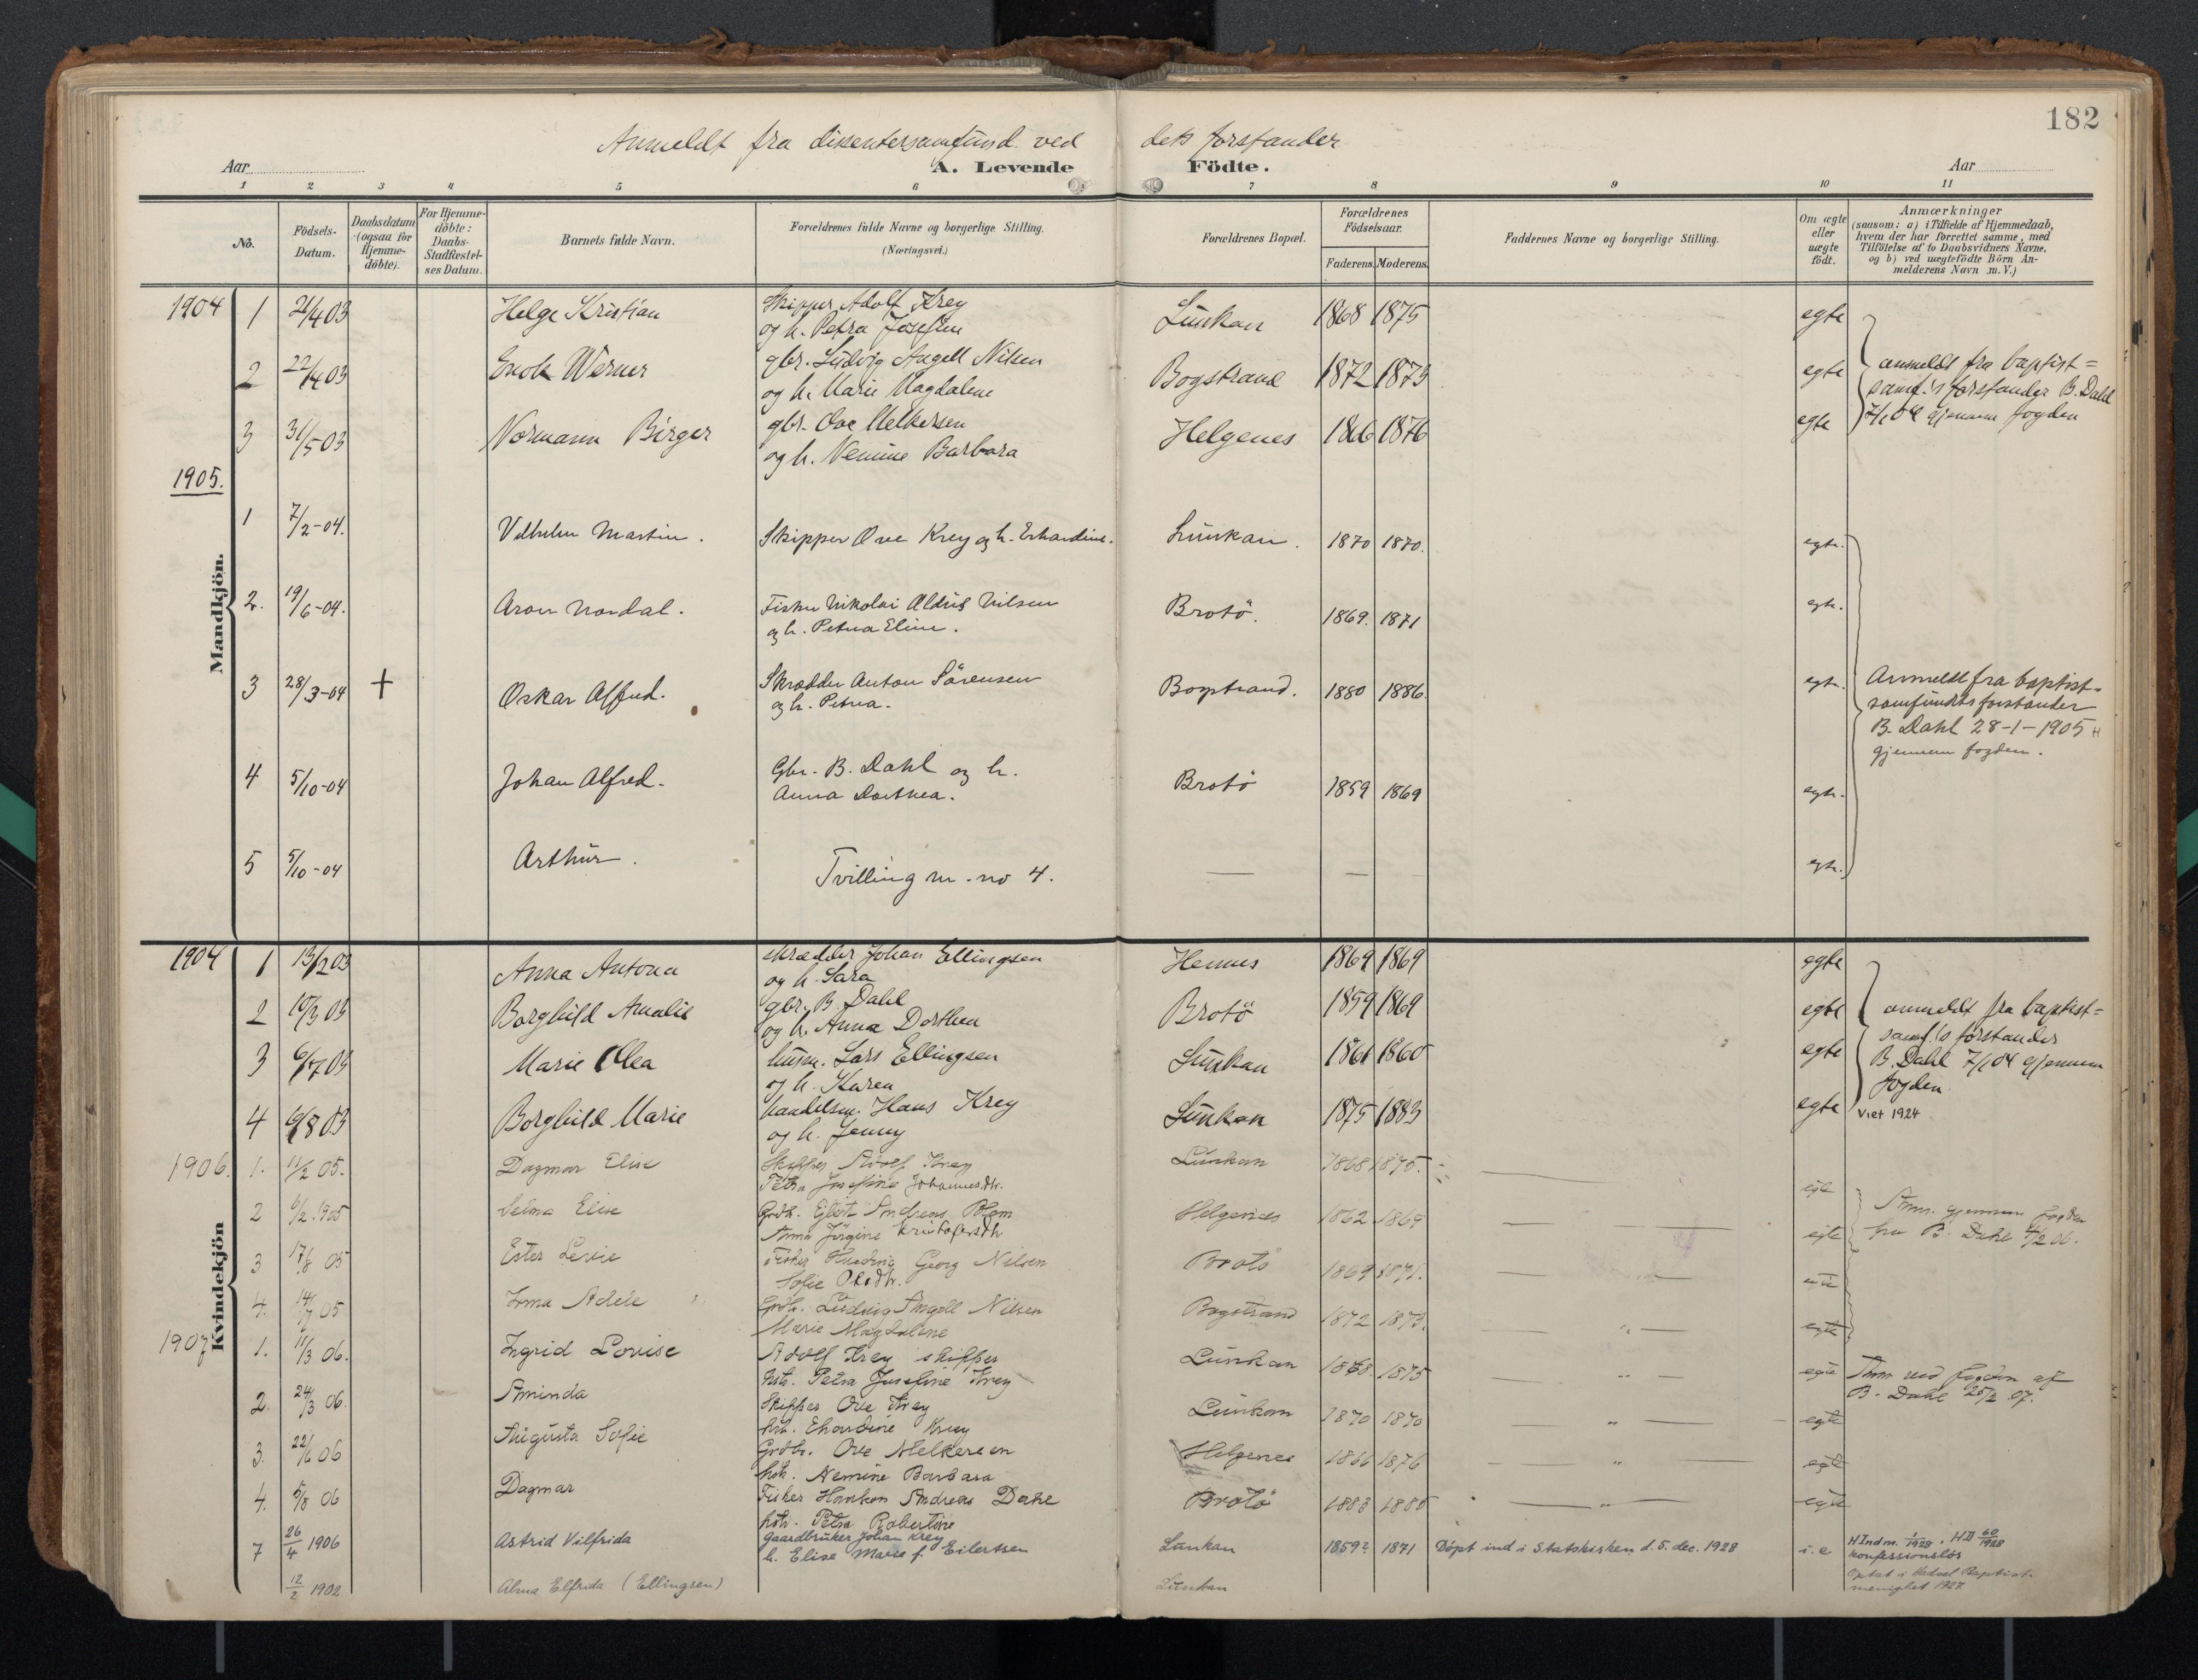 182
Anmeldt fra dissentersamfund ved dets forstander
Aar A. Levende Födte. Aar
1 2 3 4 5 6 7 8 9 10 11
No.
Födsels-
Datum.
Daabsdatum
(ogsaa for
Hjemme-
döbte).
For Hjemme-
döbte:
Daabs-
Stadfæstel-
ses Datum.
Barnets fulde Navn.
Forældrenes fulde Navne og borgerlige Stilling.
(Næringsvei.)
Forældrenes Bopæl.
Forældrenes
Födselsaar.
Faderens. Moderens.
Faddernes Navne og borgerlige Stilling.
Om ægte
eller
uægte
födt.
Anmærkninger
(saasom: a) i Tilfælde af Hjemmedaab,
hvem der har forrettet samme, med
Tilföielse af to Daabsvidners Navne,
og b) ved uægtefödte Börn An-
melderens Navn m. V.)
Mandkjön.
1904 1 21/4 03 Helge Kristian Skipper Adolf Krey
og h. Petra Josefine Lunkan 1868 1875 egte
2 22/4 03 Enok Werner gbr. Ludvig Angell Nilsen
og h. Marie Magdalene Bogstrand 1872 1873 egte
3 31/5 03 Normann Birger gbr. Ove Melkersen
og h. Nemine Barbara Helgenes 1866 1876 egte
anmeldt fra baptist=
samf.'s forstander B. Dahl
7/1 04 gjennem fogden
1905.
1 7/2-04. Vilhelm Martin. Skipper Ove Krey og h. Erhardine. Lunkan. 1870 1870. egte.
2. 19/6-04. Aron Nordal. Fisker Nikolai Aldus Nilsen
og h. Petra Eline. Brotö. 1869. 1871 egte.
3 28/3-04 + Oskar Alfred. Skrædder Anton Sörensen
og h. Petra. Bogstrand. 1880 1886. egte.
4 5/10-04 Johan Alfred. Gbr. B. Dahl og h.
Anna Dorthea. Brotö 1859 1869 egte.
5 5/10-04 Arthur. Tvilling m. no 4. — — — egte.
Anmeldt fra baptist-
samfundets forstander
B. Dahl 28-1-1905
gjennem fogden.
Kvindekjön
1904 1 13/2 03 Anna Antona skrædder Johan Ellingsen
og h. Sara Hennes 1869 1869 egte
2 10/3 03 Borghild Amalie gbr. B. Dahl
og h. Anna Dorthea Brotö 1859 1869 egte
3 6/7 03 Marie Olea husm. Lars Ellingsen
og h. Karen Lunkan 1861 1860 egte
4 6/8 03 Borghild Marie handelsm. Hans Krey
og h. Jenny Lunkan 1875 1883 egte
anmeldt fra baptist=
samf.'s forstander
B. Dahl 7/1 04 gjennem
fogden.
Viet 1924
1906. 1. 11/2 05. Dagmar Elise Skipper Adolf Krey
Petra Josefine Johannesdtr. Lunkan 1868 1875. egte
2 6/2 1905 Selma Elise Grdbr. Ejlert Andreas Blom
Anna Jörgine Kristofersdtr Helgenes 1862 1869 egte
3 17/8 05 Ester Levie Fisker Georg Nilsen
Sofie Olsdtr. Brotö 1869 1871. egte
4. 14/7 05 Irma Adele Grdbr. Ludvig Angell Nilsen
Marie Magdalene Bogstrand 1872 1873. egte
Anm. gjennem fogden
fra B. Dahl 06.
1907 1. 11/3 06. Ingrid Lovise Adolf Krey skipper
hstr. Petra Josefine Krey Lunkan 1868. 1875 egte
2. 24/3 06. Aminda Skipper Ove Krey
hstr. Ehardine Krey Lunkan 1870 1870 egte
3. 22/6 06 Augusta Sofie Grdbr. Ove Melkersen
hstr. Nemine Barbara Helgenes 1866 1876 egte
4. 5/8 06 Dagmar Fisker Haakon Andreas Dahl
hstr. Petra Robertine Brotö 1883 1885 egte
Anm ved fogden af
B. Dahl 25/2 07.
7 26/4 1906 Astrid Vilfrida Gaardbruker Johan Krey
h. Elise Marie f. Eilertsen Lunkan 1859? 1871 Döpt ind i Statskirken d. 5. dec. 1928 i. e H Ind m. 1/1928, HD 60/1928
konfessionslös
12/2 1902 Alma Elfrida (Ellingsen) Lunkan Optat i Hadsel Baptist-
menighet 1927.